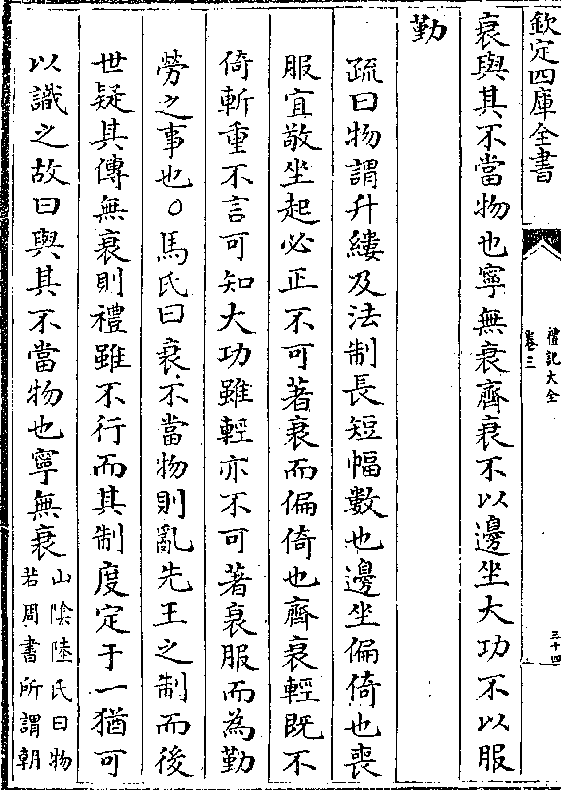 欽定四庫全書
禮記大全
卷三
三十四
衰與其不當物也寧無衰齊衰不以邊坐大功不以服
勤
疏曰物謂升縷及法制長短幅數也邊坐偏倚也喪
服宜敬坐起必正不可著衰而偏倚也齊衰輕既不
倚斬重不言可知大功雖輕亦不可著衰服而為勤
勞之事也○馬氏曰衰不當物則亂先王之制而後
世疑其傳無衰則禮雖不行而其制度定于一猶可
以識之故曰與其不當物也寧無衰
山陰陸氏曰物
若周書所謂朝